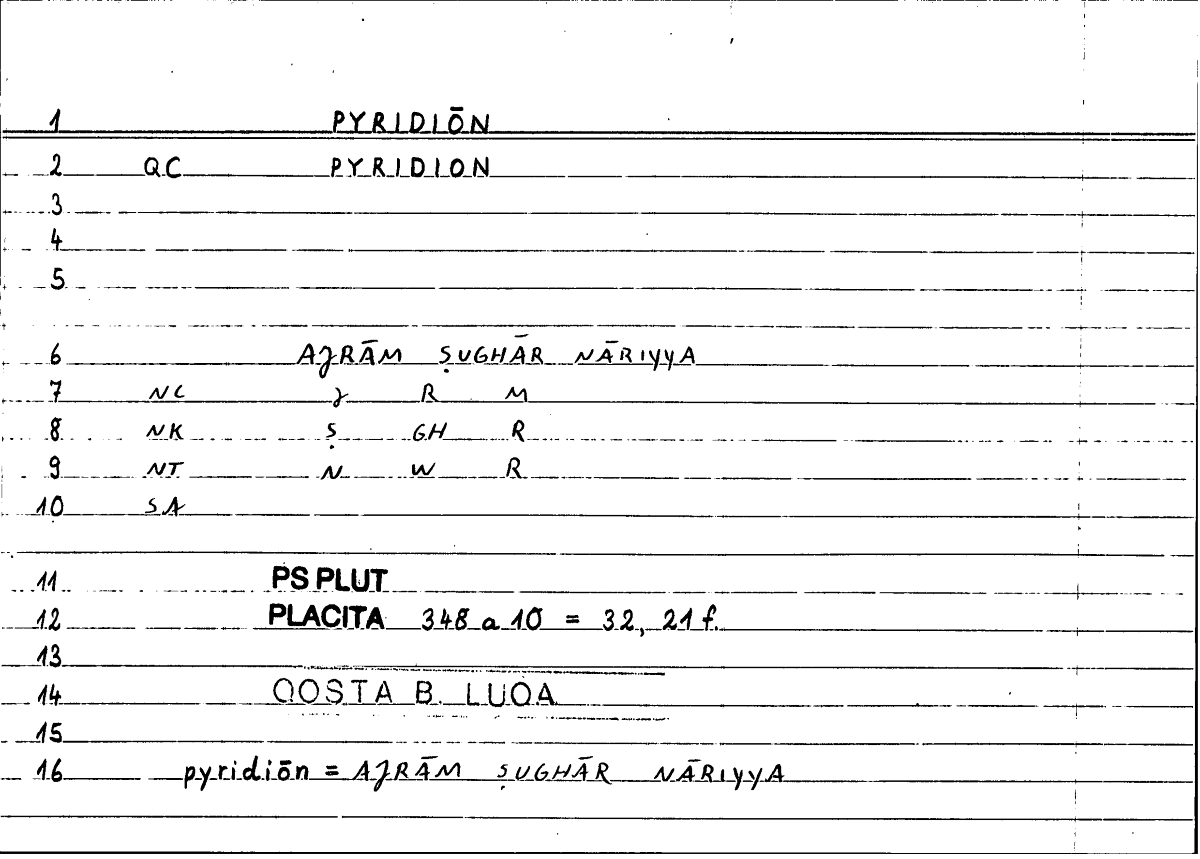 1 PYRIDIŌN
2 QC PYRIDION
3
4
5
6 AJRĀM ṢUGHĀR NĀRIYYA
7 NC J R M
8 NK Ṣ GH R
9 NT N W R
10 SA
11 PS PLUT
12 PLACITA 348 a 10 = 32, 21 f.
13
14 QOSTA B. LUQA
15
16 pyridiōn = AJRĀM ṢUGHĀR NĀRIYYA